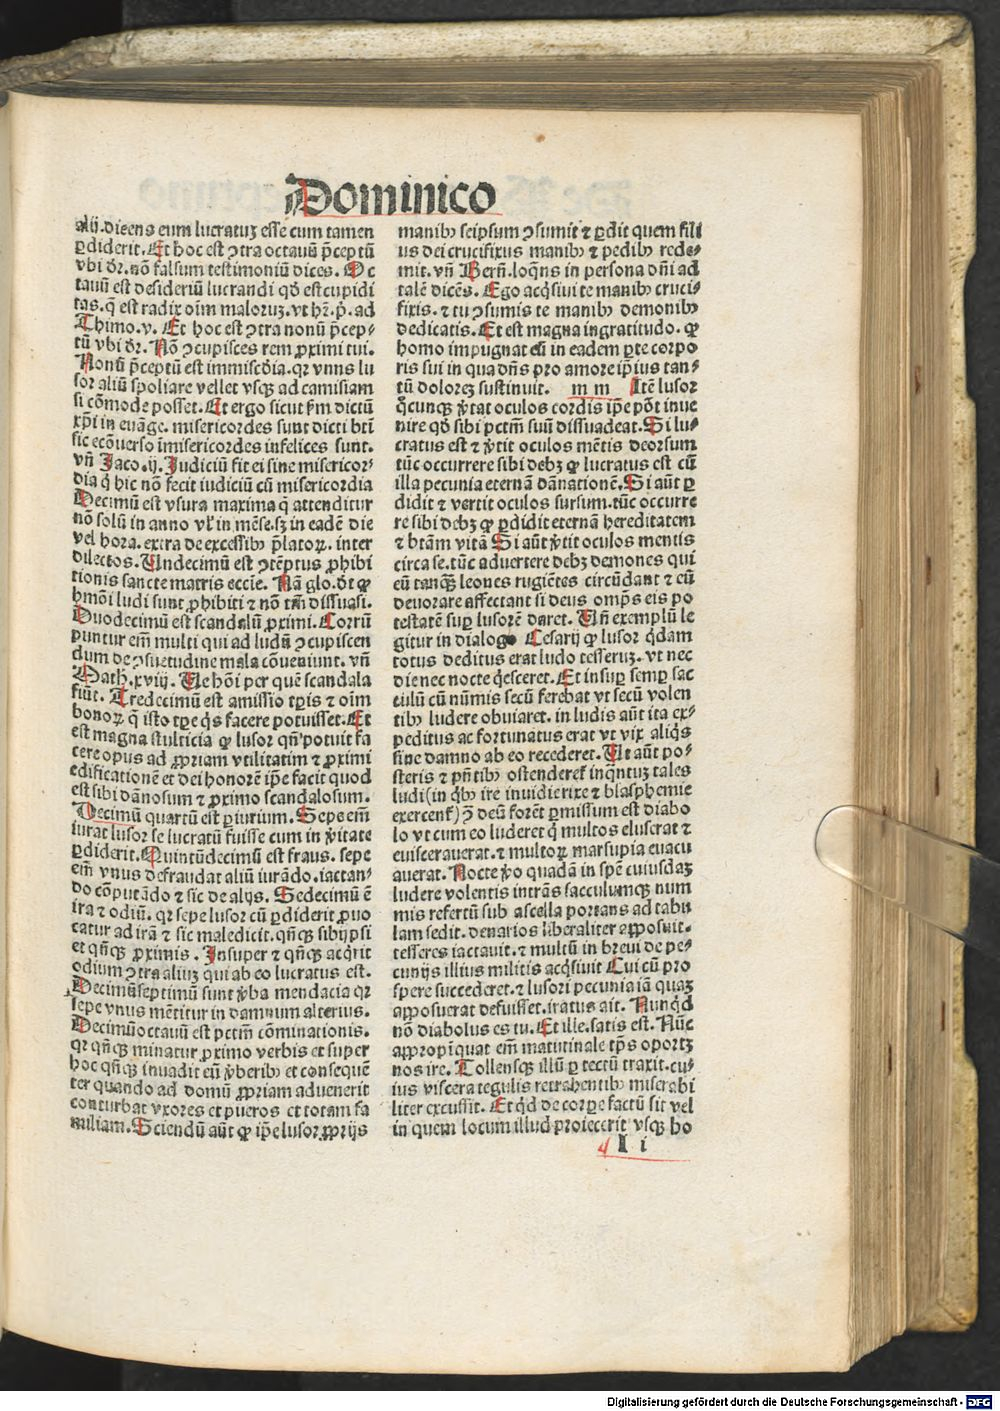 Dominico
alij. dicens eum lucratuȝ esse cum tamen
ꝑdiderit. Et hoc est ↄtra octauū p̄ceptū
vbi dr̄. nō falsum testimoniū dices. Oc
tauū est desideriū lucrandi qd̄ est cupidi
tas. q̄ est radix oīm maloruȝ. vt hr̄. p̄. ad
Thimo. v. Et hoc est ↄtra nonū p̄cep⸗
tū vbi dr̄. Nō ↄcupisces rem ꝓximi tui.
Nonū p̄ceptū est immisc̄dia. qr vnus lu
sor aliū spoliare vellet vsqꝫ ad camisiam
si cōmode posset. Et ergo sicut ẜm dictū
xp̄i in euāge. misericordes sunt dicti bt̄i
sic ecōuerso īmisericordes infelices sunt.
vn̄ Jaco. ij. Judiciū fit ei sine misericor⸗
dia q̇ hic nō fecit iudiciū cū misericordia
Decimū est vsura maxima q̄ attenditur
nō solū in anno vl̓ in mēse. sꝫ in eadē die
vel hora. extra de excessibꝰ p̄latoꝝ. inter
dilectos. Undecimū est ↄtēptus ꝓhibi
tionis sancte matris eccīe. Nā glo. dt̄ ꝙ
hmōi ludi sunt ꝓhibiti ⁊ nō tm̄ dissuasi.
Duodecimū est scandalū ꝓximi. Corrū
puntur em̄ multi qui ad ludū ↄcupiscen
dum de ↄsuetudine mala cōueniunt. vn̄
Math. xviij. Ue hōi per quē scandala
fiūt. Tredecimū est amissio tꝑis ⁊ oīm
bonoꝝ q̄ isto tꝑe q̇s facere potuisset. Et
est magna stulticia ꝙ lusor qn̄ potuit fa
cere opus ad ꝓpriam vtilitatim ⁊ ꝓximi
edificationē et dei honorē ip̄e facit quod
est sibi dānosum ⁊ ꝓximo scandalosum.
Decimū quartū est ꝑiurium. Sepe em̄
iurat lusor se lucratū fuisse cum in v̓itate
ꝑdiderit. Quintūdecimū est fraus. sepe
em̄ vnus defraudat aliū iurādo. iactan⸗
do cōputādo ⁊ sic de alijs. Sedecimū ē
ira ⁊ odiū. qr sepe lusor cū ꝑdiderit ꝓuo
catur ad irā ⁊ sic maledicit. qn̄qꝫ sibijpsi
et qn̄qꝫ ꝓximis. Insuper ⁊ qn̄qꝫ acq̇rit
odium ↄtra aliuȝ qui ab eo lucratus est.
Decimūseptimū sunt v̓ba mendacia qr
sepe vnus mētitur in damnum alterius.
Decimūoctauū est pctm̄ cōminationis.
qr qn̄qꝫ minatur ꝓximo verbis et super
hoc qn̄qꝫ inuadit eū v̓beribꝰ et consequē
ter quando ad domū ꝓpriam aduenerit
conturbat vxores et pueros et totam fa
miliam. Sciendū aūt ꝙ ip̄e lusor ꝓprijs
manibꝰ seipsum ↄsumit ⁊ ꝑdit quem fili
us dei crucifixus manibꝰ ⁊ pedibꝰ rede⸗
mit. vn̄ Bern̄. loq̄ns in persona dn̄i ad
talē dicēs. Ego acq̇siui te manibꝰ cruci⸗
fixis. ⁊ tu ↄsumis te manibꝰ demonibꝰ
dedicatis. Et est magna ingratitudo. ꝙ
homo impugnat eū in eadem ꝑte corpo
ris sui in qua dn̄s pro amore ip̄ius tan⸗
tū dolores sustinuit. m m Itē lusor
q̊cunqꝫ v̓tat oculos cordis ip̄e pōt inue
nire qd̄ sibi pctm̄ suū dissuadeat. Si lu⸗
cratus est ⁊ v̓tit oculos mētis deorsum
tūc occurrere sibi debꝫ ꝙ lucratus est cū
illa pecunia eternā dānationē. Si aūt ꝑ
didit ⁊ vertit oculos sursum. tūc occurre
re sibi debꝫ ꝙ ꝑdidit eternā hereditatem
⁊ btām vitā Si aūt v̓tit oculos mentis
circa se. tūc aduertere debꝫ demones qui
eū tanqꝫ leones rugiētes circūdant ⁊ eū
deuorare affectant si deus omp̄s eis po
testatē suꝑ lusorē daret. Un̄ exemplū le
gitur in dialogo Cesarij ꝙ lusor q̇dam
totus deditus erat ludo tesseruȝ. vt nec
die nec nocte q̇esceret. Et insuꝑ semꝑ sac
culū cū nūmis secū ferebat vt secū volen
tibꝰ ludere obuiaret. in ludis aūt ita ex⸗
peditus ac fortunatus erat vt vix aliq̇s
sine damno ab eo recederet. Ut aūt po⸗
steris ⁊ pn̄tibꝰ ostenderet̉ inq̄ntuȝ tales
ludi (in q̇bꝰ ire inuidie rixe ⁊ blasphemie
exercent̉) ↄ̄ deū forēt ꝑmissum est diabo
lo vt cum eo luderet q̇ multos eluserat ⁊
euiscerauerat. ⁊ multoꝝ marsupia euacu
auerat. Nocte v̊o quadā in spē cuiusdaȝ
ludere volentis intrās sacculumqꝫ num
mis refertū sub ascella portans ad tabu
lam sedit. denarios liberaliter apposuit.
tesseres iactauit. ⁊ multū in breui de pe⸗
cunijs illius militis acq̇siuit Cui cū pro
spere succederet. ⁊ lusori pecunia iā quaȝ
apposuerat defuisset. iratus ait. Nunq̇d
nō diabolus es tu. Et ille. satis est. Nūc
appropīquat em̄ matutinale tp̄s oportȝ
nos ire. Tollensqꝫ illū ꝑ tectū traxit. cu⸗
ius viscera tegulis retrahentibꝰ miserabi
liter excussit. Et q̇d de corꝑe factū sit vel
in quem locum illud proiecerit vsqꝫ ho
I i
Digitalisierung gefördert durch die Deutsche Forschungsgemeinschaft - DFG